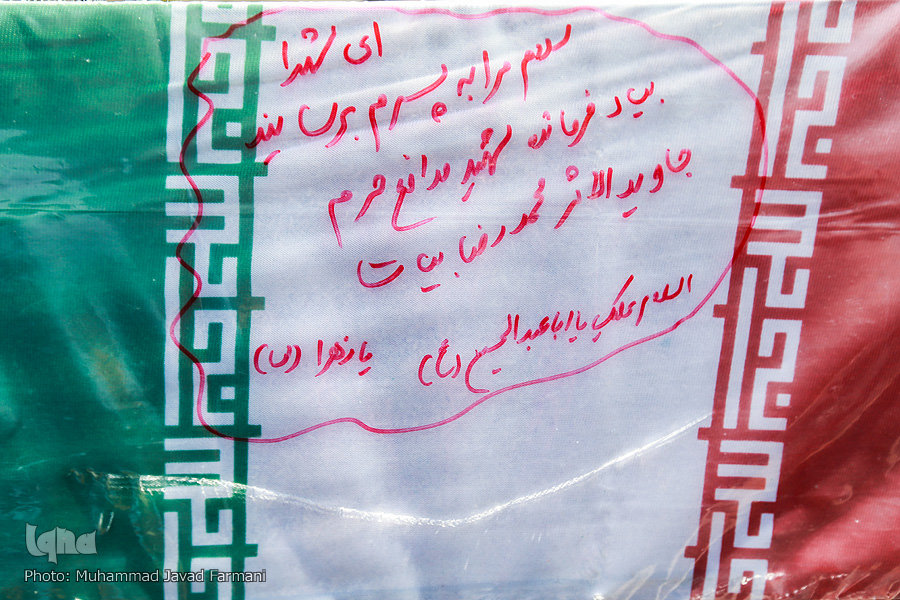 ای شهدا
سلام مرا به پسرم برسانید
بیاد فرمانده شهید مدافع حرم
جاوید الاثر محمد رضا بیات
السلام علیک یا اباعبدالحسین (ع)
یا زهرا (س)
Iqna
Photo: Muhammad Javad Farmani